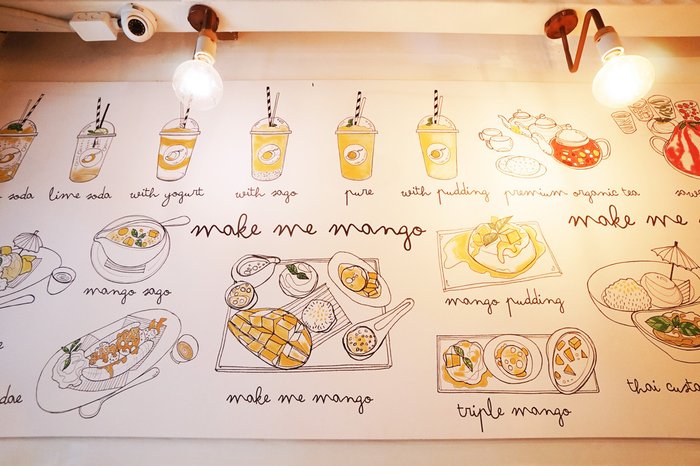 soda
lime soda
with yogurt
with sago
pure
with pudding
premium organic tea
make me mango
make me
mango sago
mango pudding
make me mango
triple mango
thai